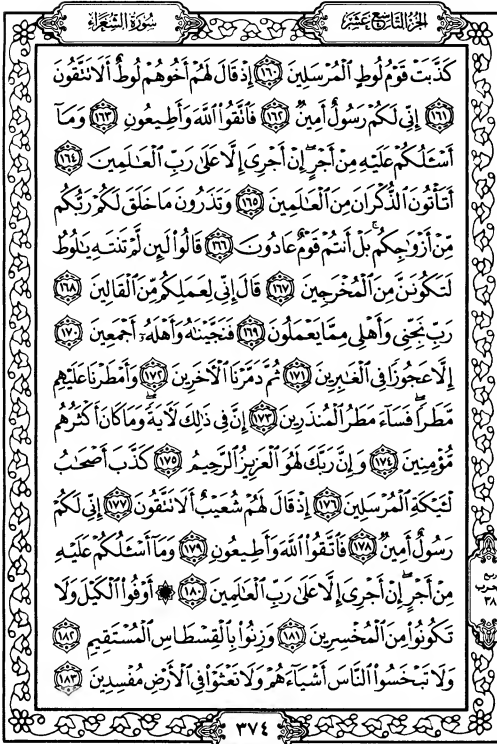 الجزء التاسع عشر
سورة الشعراء
كَذَّبَتْ قَوْمُ لُوطٍ الْمُرْسَلِينَ ١٦٠ إِذْ قَالَ لَهُمْ أَخُوهُمْ لُوطٌ أَلَا تَتَّقُونَ
١٦١ إِنِّي لَكُمْ رَسُولٌ أَمِينٌ ١٦٢ فَاتَّقُوا اللَّهَ وَأَطِيعُونِ ١٦٣ وَمَا
أَسْـَٔلُكُمْ عَلَيْهِ مِنْ أَجْرٍ ۖ إِنْ أَجْرِيَ إِلَّا عَلَىٰ رَبِّ الْعَـٰلَمِينَ ١٦٤
أَتَأْتُونَ الذُّكْرَانَ مِنَ الْعَـٰلَمِينَ ١٦٥ وَتَذَرُونَ مَا خَلَقَ لَكُمْ رَبُّكُم
مِّنْ أَزْوَٰجِكُم ۚ بَلْ أَنتُمْ قَوْمٌ عَادُونَ ١٦٦ قَالُوا لَئِن لَّمْ تَنتَهِ يَـٰلُوطُ
لَتَكُونَنَّ مِنَ الْمُخْرَجِينَ ١٦٧ قَالَ إِنِّي لِعَمَلِكُم مِّنَ الْقَالِينَ ١٦٨
رَبِّ نَجِّنِي وَأَهْلِي مِمَّا يَعْمَلُونَ ١٦٩ فَنَجَّيْنَـٰهُ وَأَهْلَهُ أَجْمَعِينَ ١٧٠
إِلَّا عَجُوزًا فِي الْغَـٰبِرِينَ ١٧١ ثُمَّ دَمَّرْنَا الْـَٔاخَرِينَ ١٧٢ وَأَمْطَرْنَا عَلَيْهِم
مَّطَرًا ۖ فَسَاءَ مَطَرُ الْمُنذَرِينَ ١٧٣ إِنَّ فِي ذَٰلِكَ لَـَٔايَةً ۖ وَمَا كَانَ أَكْثَرُهُم
مُّؤْمِنِينَ ١٧٤ وَإِنَّ رَبَّكَ لَهُوَ الْعَزِيزُ الرَّحِيمُ ١٧٥ كَذَّبَ أَصْحَـٰبُ
لْـَٔيْكَةِ الْمُرْسَلِينَ ١٧٦ إِذْ قَالَ لَهُمْ شُعَيْبٌ أَلَا تَتَّقُونَ ١٧٧ إِنِّي لَكُمْ
رَسُولٌ أَمِينٌ ١٧٨ فَاتَّقُوا اللَّهَ وَأَطِيعُونِ ١٧٩ وَمَا أَسْـَٔلُكُمْ عَلَيْهِ
مِنْ أَجْرٍ ۖ إِنْ أَجْرِيَ إِلَّا عَلَىٰ رَبِّ الْعَـٰلَمِينَ ١٨٠ ۞ أَوْفُوا الْكَيْلَ وَلَا
تَكُونُوا مِنَ الْمُخْسِرِينَ ١٨١ وَزِنُوا بِالْقِسْطَاسِ الْمُسْتَقِيمِ ١٨٢
وَلَا تَبْخَسُوا النَّاسَ أَشْيَاءَهُمْ وَلَا تَعْثَوْا فِي الْأَرْضِ مُفْسِدِينَ ١٨٣
ربع
الحزب
٣٨
٣٧٤